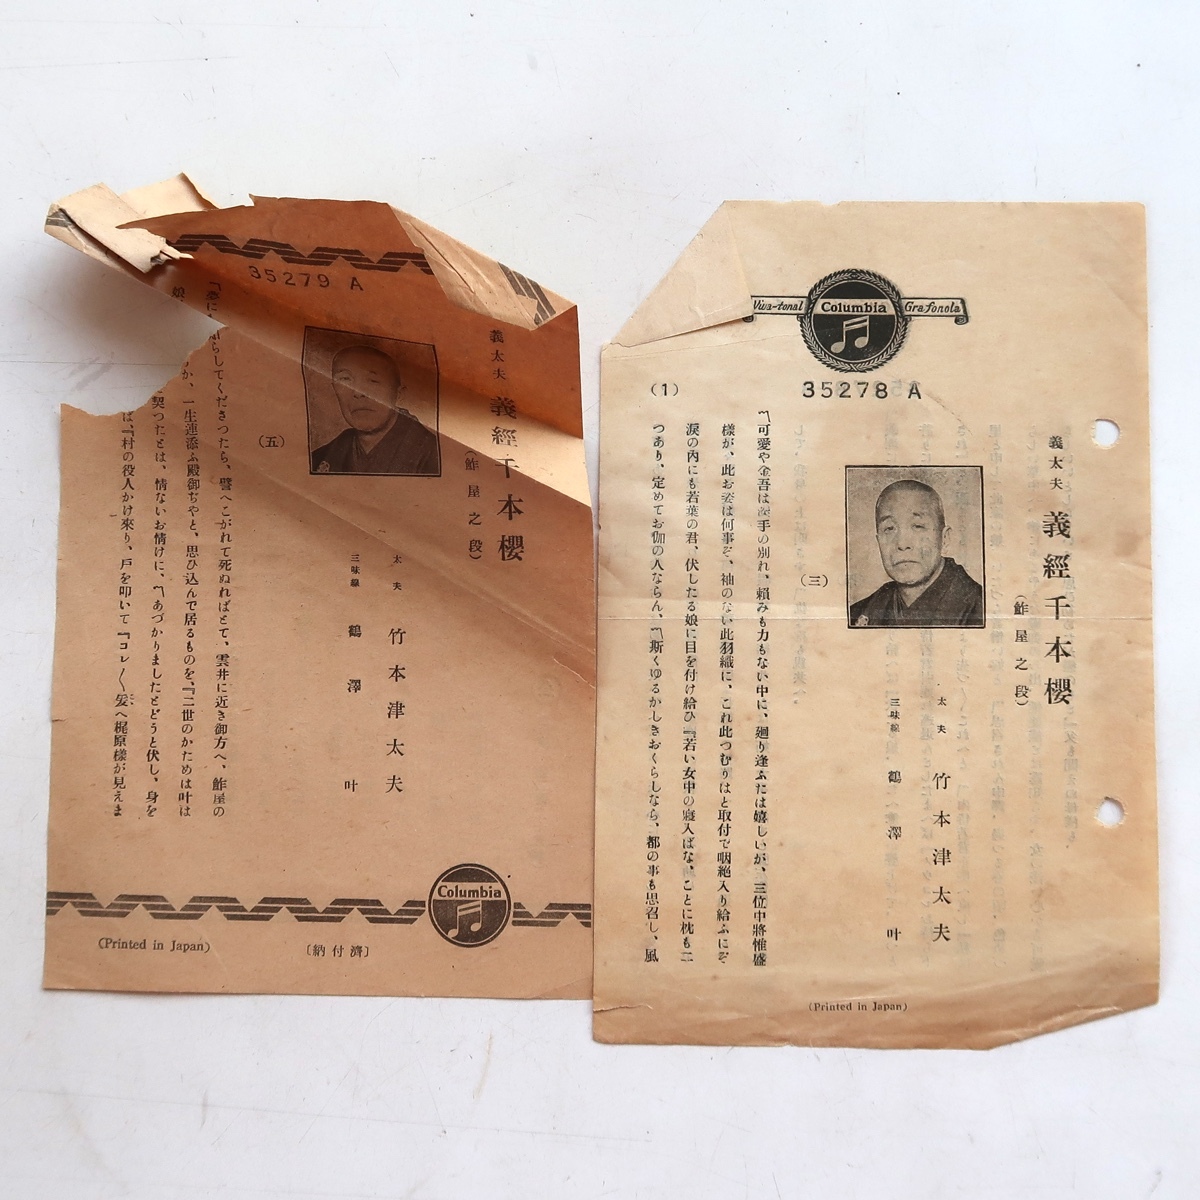 Viva-tonal Columbia Grafonola
35278 A
(1)
義太夫 義經千本櫻
(鮓屋之段)
(三)
太夫 竹本津太夫
三味線 鶴澤 叶
『可愛や金吾は深手の別れ、賴みも力もない中に、廻り逢ふたは嬉しいが、三位中將惟盛
樣が、此お姿は何事ぞ、袖のない此羽織に、これ此つむりはと取付て咽絕入り給ふにぞ
淚の內にも若葉の君、伏したる娘に目を付け給ひ『若い女中の寢入ばな、ことに枕も二
つあり、定めてお伽の人ならん、斯くゆるかしきおくらしなら、都の事も思召し、風
(Printed in Japan)
35279 A
義太夫 義經千本櫻
(鮓屋之段)
(五)
太夫 竹本津太夫
三味線 鶴澤 叶
らしてくださつたら、譬へこがれて死ぬればとて、雲井に近き御方へ、鮓屋の
か、一生連添ふ殿御ぢやと、思ひ込んで居るものを、『二世のかためは叶は
契つたとは、情ないお情けに、あづかりましたとどうと伏し、身を
ば、『村の役人かけ來り、戶を叩いて『コレ〱爰へ梶原樣が見えま
Columbia
(Printed in Japan)
〔納付濟〕